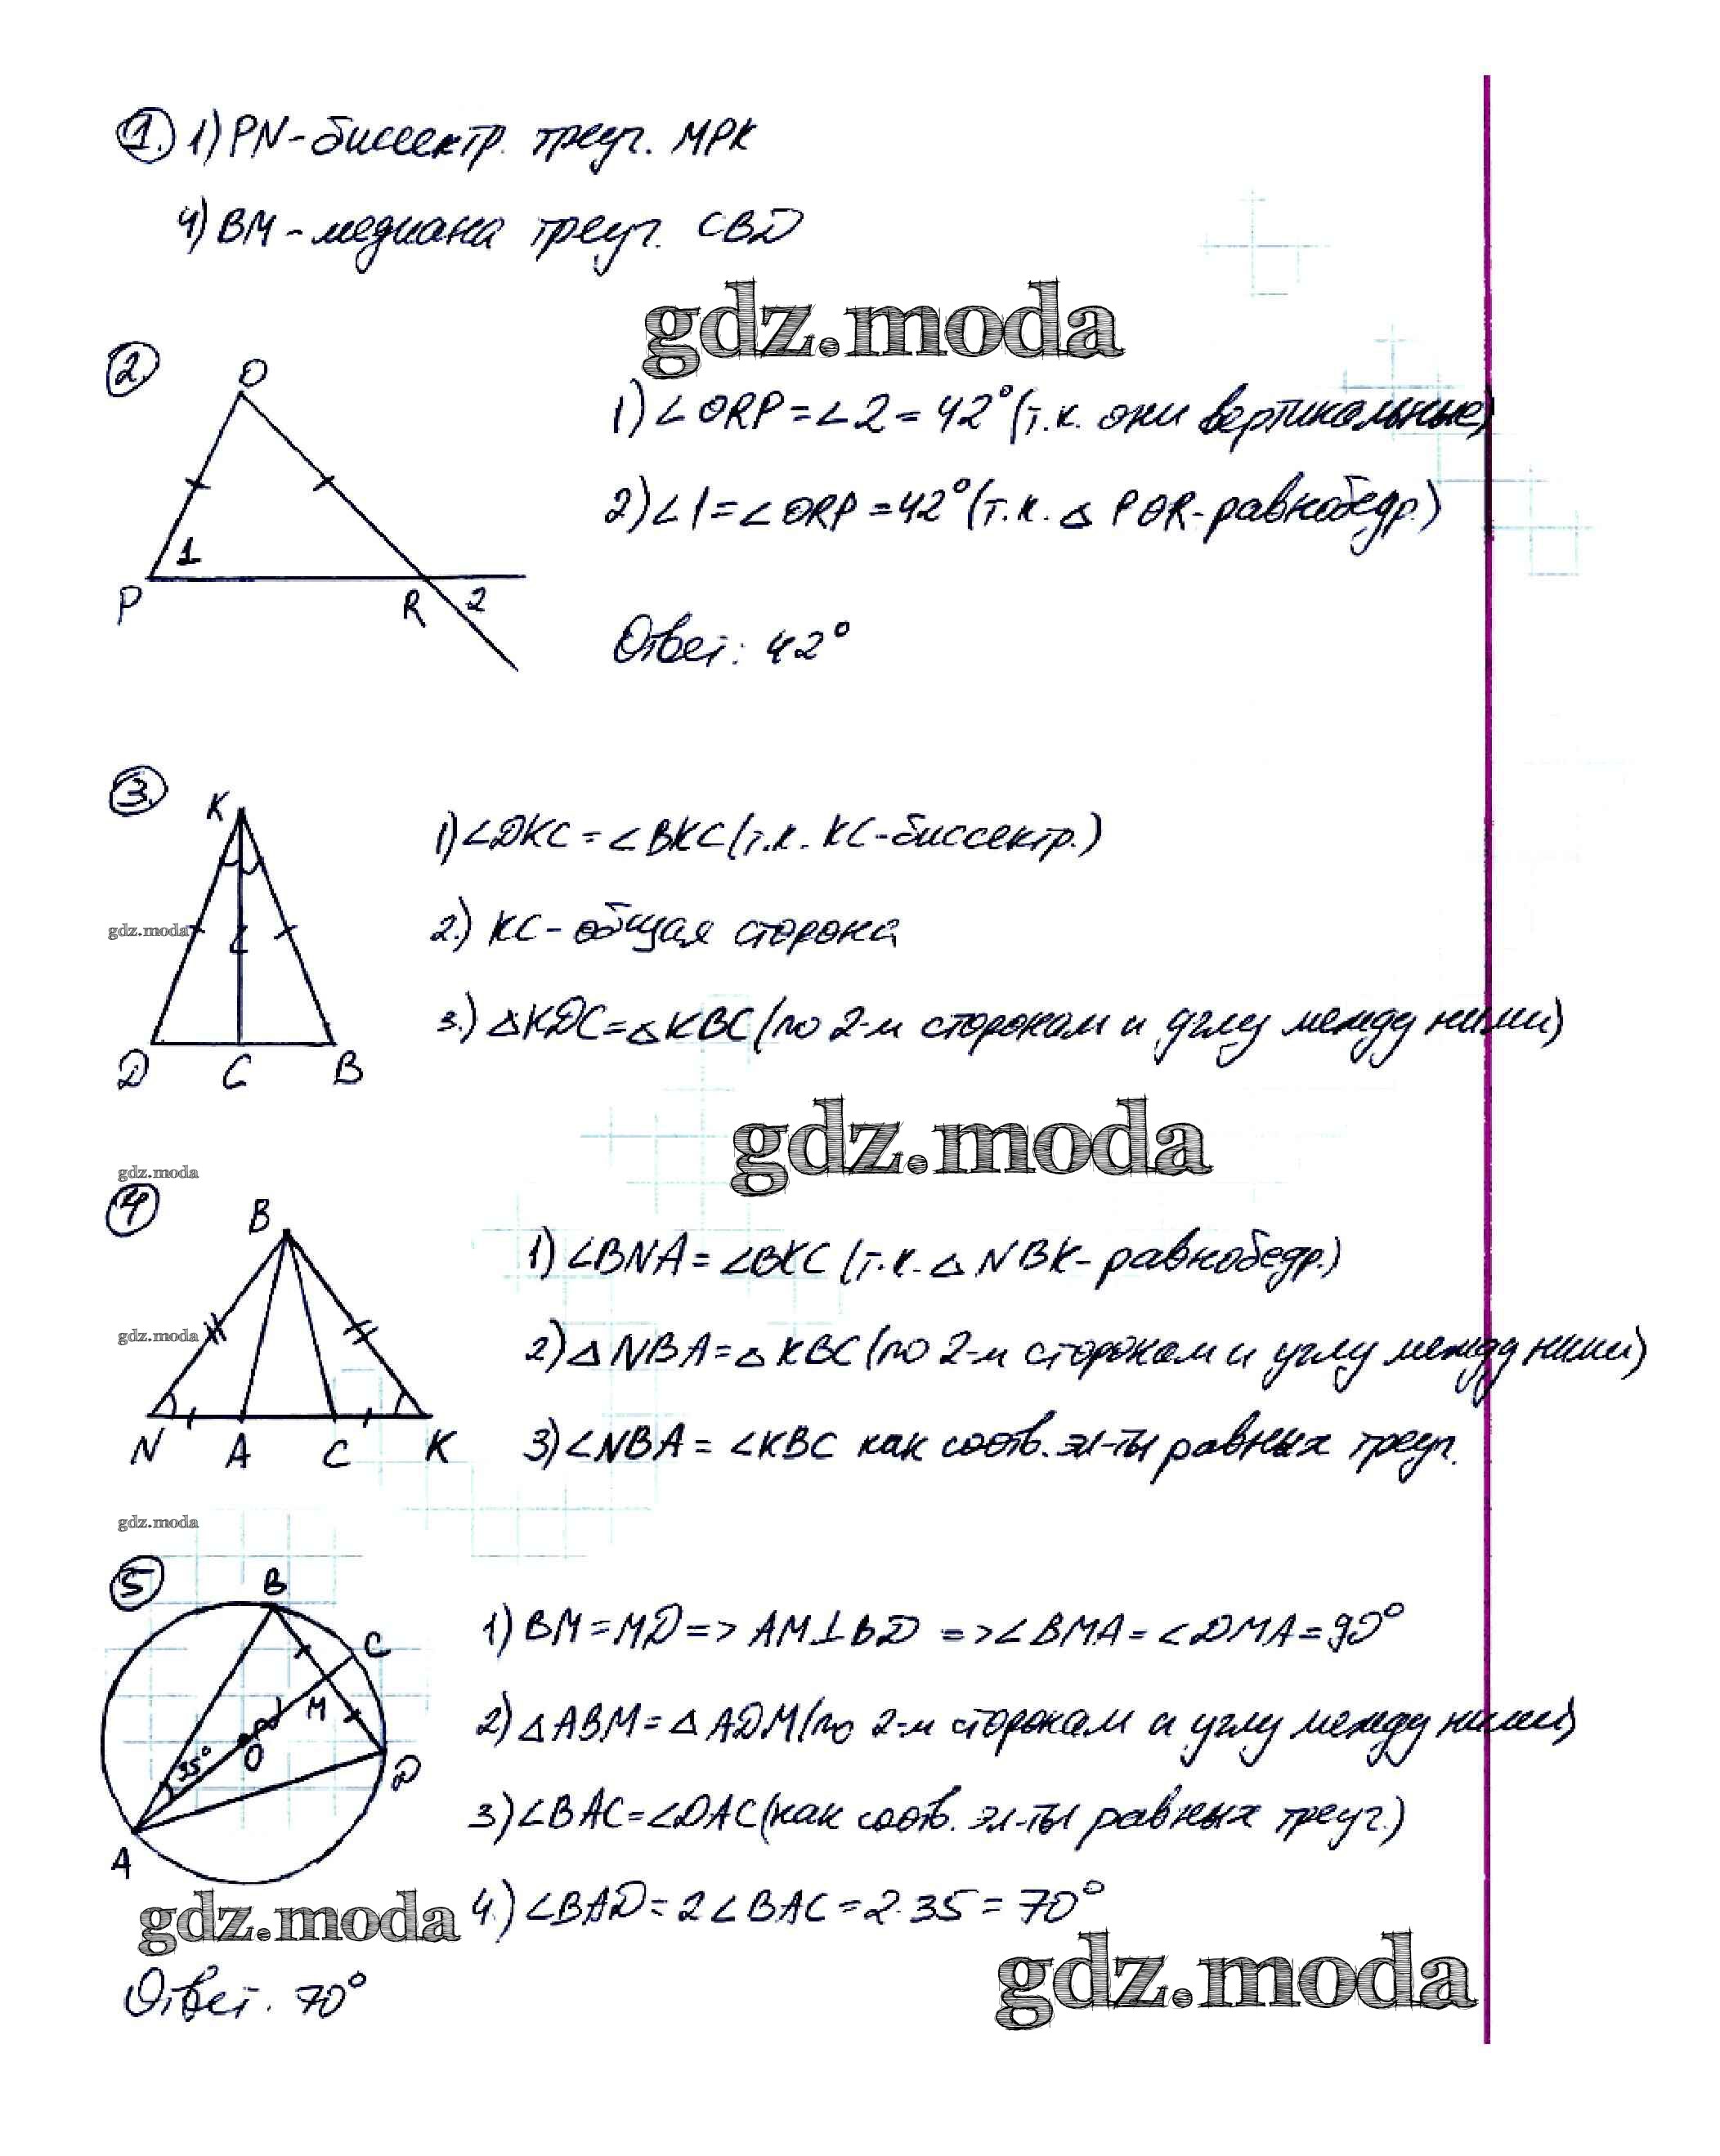 1. 1) PN - биссектр. треуг. МРК
4) ВМ - медиана треуг. CBD
gdz.moda
2. O
1) ∠ORP = ∠2 = 42° (т.к. они вертикальные)
2) ∠1 = ∠ORP = 42° (т.к. △ POR - равнобедр.)
1
P R 2
Ответ: 42°
3. K
1) ∠DKC = ∠BKC (т.к. KC - биссектр.)
gdz.moda
2.) KC - общая сторона
3.) △KDC = △KBC (по 2-м сторонам и углу между ними)
D C B
gdz.moda
gdz.moda
4 B
1) ∠BNA = ∠BKC (т.к. △ NBK - равнобедр.)
gdz.moda
2) △ NBA = △ KBC (по 2-м сторонам и углу между ними)
N A C K
3) ∠NBA = ∠KBC как соотв. эл-ты равных треуг.
gdz.moda
5 B
C
1) BM = MD => AM⊥BD => ∠BMA = ∠DMA = 90°
M
2) △ABM = △ADM (по 2-м сторонам и углу между ними)
35° O D
3) ∠BAC = ∠DAC (как соотв. эл-ты равных треуг.)
A
gdz.moda
4.) ∠BAD = 2∠BAC = 2·35 = 70°
gdz.moda
Ответ. 70°